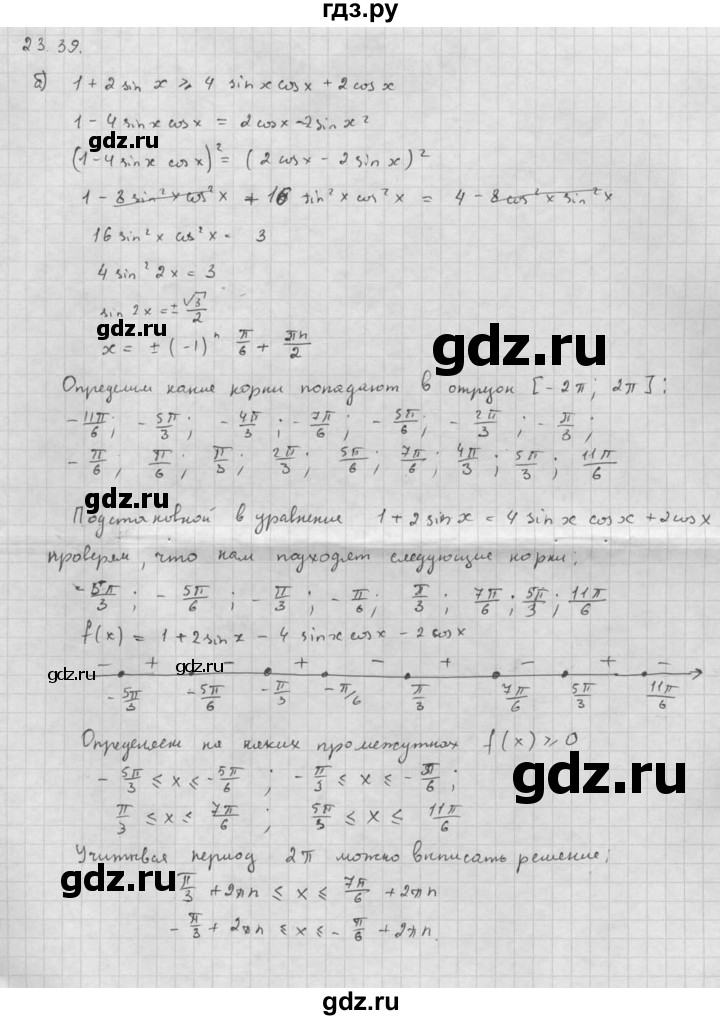 гдз.ру
23.39.
б) 1 + 2 sin x ⩾ 4 sin x cos x + 2 cos x
1 - 4 sin x cos x = 2 cos x - 2 sin x²
gdz.ru
(1 - 4 sin x cos x)² = (2 cos x - 2 sin x)²
1 - 8 sin² x cos² x + 16 sin² x cos² x = 4 - 8 cos² x sin² x
gdz.ru
16 sin² x cos² x = 3
4 sin² 2x = 3
sin 2x = ± √3/2
gdz.ru
x = ± (-1)ⁿ π/6 + πn/2
gdz.ru
Определим какие корни попадают в отрезок [-2π; 2π]:
-11π/6; -5π/3; -4π/3; -7π/6; -5π/6; -2π/3; -π/3;
-π/6; π/6; π/3; 2π/3; 5π/6; 7π/6; 4π/3; 5π/3; 11π/6
gdz.ru
Подстановкой в уравнение 1 + 2 sin x = 4 sin x cos x + 2 cos x
проверяем, что нам подходят следующие корни:
gdz.ru
-5π/3; -5π/6; -π/3; -π/6; π/3; 7π/6; 5π/3; 11π/6
f(x) = 1 + 2 sin x - 4 sin x cos x - 2 cos x
gdz.ru gdz.ru
- + - + - + - + -
-5π/3 -5π/6 -π/3 -π/6 π/3 7π/6 5π/3 11π/6
Определяем на каких промежутках f(x) ⩾ 0
gdz.ru
-5π/3 ⩽ x ⩽ -5π/6; -π/3 ⩽ x ⩽ -π/6;
gdz.ru
π/3 ⩽ x ⩽ 7π/6; 5π/3 ⩽ x ⩽ 11π/6
Учитывая период 2π можно выписать решение:
gdz.ru
π/3 + 2πn ⩽ x ⩽ 7π/6 + 2πn
-π/3 + 2πn ⩽ x ⩽ -π/6 + 2πn.
gdz.ru